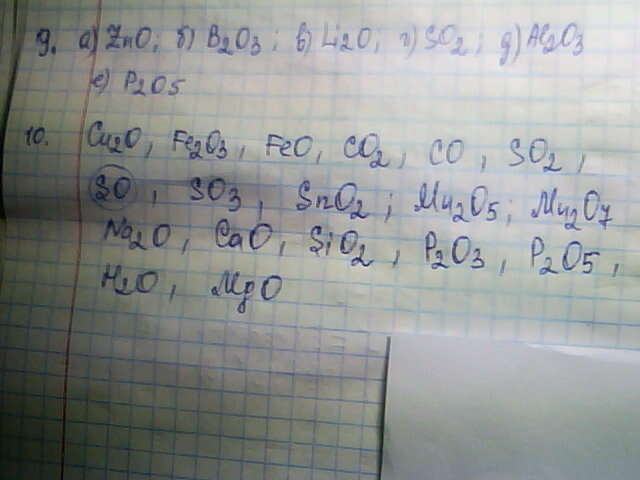 9. а) ZnO; б) B2O3; в) Li2O; г) SO2; д) Al2O3
е) P2O5
10. Cu2O, Fe2O3, FeO, CO2, CO, SO2,
SO, SO3, SnO2; Mn2O5; Mn2O7
Na2O, CaO, SiO2, P2O3, P2O5,
H2O, MgO